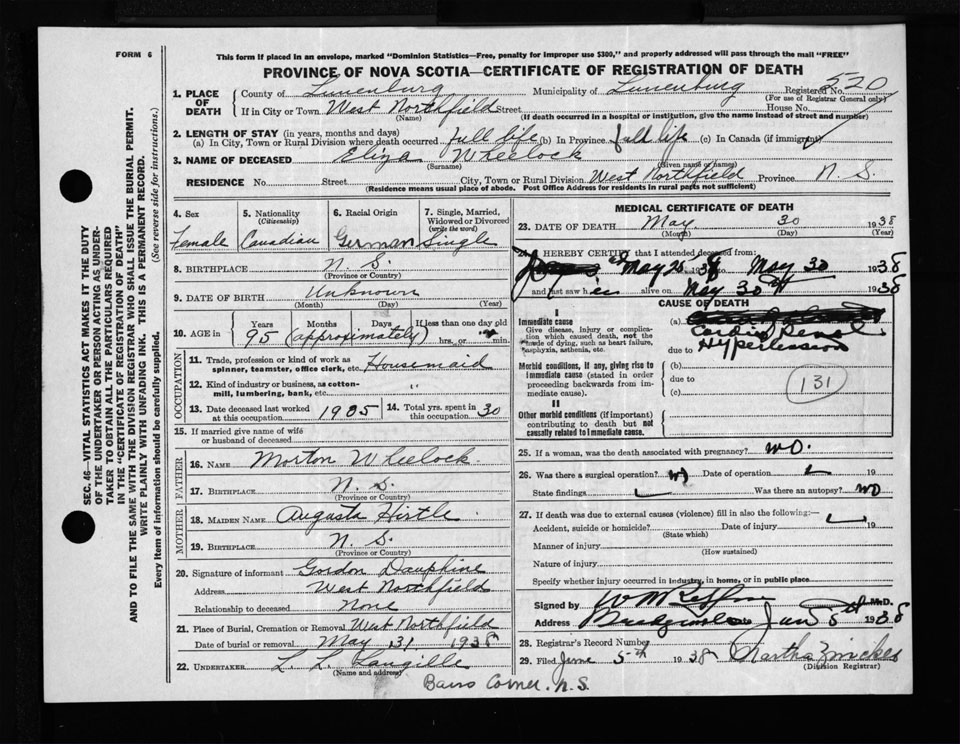 FORM 6
This form if placed in an envelope, marked "Dominion Statistics—Free, penalty for improper use $300," and properly addressed will pass through the mail "FREE"
PROVINCE OF NOVA SCOTIA—CERTIFICATE OF REGISTRATION OF DEATH
1. PLACE OF DEATH County of Lunenburg Municipality of Lunenburg Registered No. 520
(For use of Registrar General only)
If in City or Town West Northfield Street House No.
(Name) (If death occurred in a hospital or institution, give the name instead of street and number)
2. LENGTH OF STAY (in years, months and days)
(a) In City, Town or Rural Division where death occurred full life (b) In Province full life (c) In Canada (if immigrant)
3. NAME OF DECEASED Eliza Wheelock
(Surname) (Given name or names)
RESIDENCE No. Street City, Town or Rural Division West Northfield Province N. S.
(Residence means usual place of abode. Post Office Address for residents in rural parts not sufficient)
SEC. 46—VITAL STATISTICS ACT MAKES IT THE DUTY
OF THE UNDERTAKER OR PERSON ACTING AS UNDER-
TAKER TO OBTAIN ALL THE PARTICULARS REQUIRED
IN THE "CERTIFICATE OF REGISTRATION OF DEATH"
AND TO FILE THE SAME WITH THE DIVISION REGISTRAR WHO SHALL ISSUE THE BURIAL PERMIT.
WRITE PLAINLY WITH UNFADING INK. THIS IS A PERMANENT RECORD.
Every item of information should be carefully supplied. (See reverse side for instructions.)
4. Sex 5. Nationality 6. Racial Origin 7. Single, Married,
(Citizenship) Widowed or Divorced
(write the word)
Female Canadian German Single
8. BIRTHPLACE N. S.
(Province or Country)
9. DATE OF BIRTH Unknown
(Month) (Day) (Year)
10. AGE in Years Months Days If less than one day old
95 (approximately) hrs. or min.
OCCUPATION
11. Trade, profession or kind of work as
spinner, teamster, office clerk, etc. Housemaid
12. Kind of industry or business, as cotton-
mill, lumbering, bank, etc. "
13. Date deceased last worked at this occupation 1905 14. Total yrs. spent in this occupation 30
15. If married give name of wife
or husband of deceased
FATHER
16. NAME Morton Wheelock
17. BIRTHPLACE N. S.
(Province or Country)
MOTHER
18. MAIDEN NAME Augusta Hirtle
19. BIRTHPLACE N. S.
(Province or Country)
20. Signature of informant Gordon Dauphine
Address West Northfield
Relationship to deceased None
21. Place of Burial, Cremation or Removal West Northfield
Date of burial or removal May 31 1938
22. UNDERTAKER L. L. Langille
(Name and address)
Bairs Corner. N.S.
MEDICAL CERTIFICATE OF DEATH
23. DATE OF DEATH May 30 1938
(Month) (Day) (Year)
24. I HEREBY CERTIFY that I attended deceased from:
May 25 1938 to May 30 1938
and last saw her alive on May 30th 1938
CAUSE OF DEATH
I
Immediate cause (a)
Give disease, injury or complication which caused death, not the mode of dying, such as heart failure, asphyxia, asthenia, etc.
Cardio Renal
due to Hypertension
Morbid conditions, if any, giving rise to immediate cause (stated in order proceeding backwards from immediate cause). (b)
due to
(c)
131
II
Other morbid conditions (if important) contributing to death but not causally related to immediate cause.
25. If a woman, was the death associated with pregnancy? no.
26. Was there a surgical operation? no Date of operation 19
State findings Was there an autopsy? no
27. If death was due to external causes (violence) fill in also the following:—
Accident, suicide or homicide? Date of injury 19
(State which)
Manner of injury
(How sustained)
Nature of injury
Specify whether injury occurred in industry, in home, or in public place
Signed by M.D.
Address Bridgewater June 5th 1938
28. Registrar's Record Number
29. Filed June 5th 1938 Martha Zwicker
(Division Registrar)